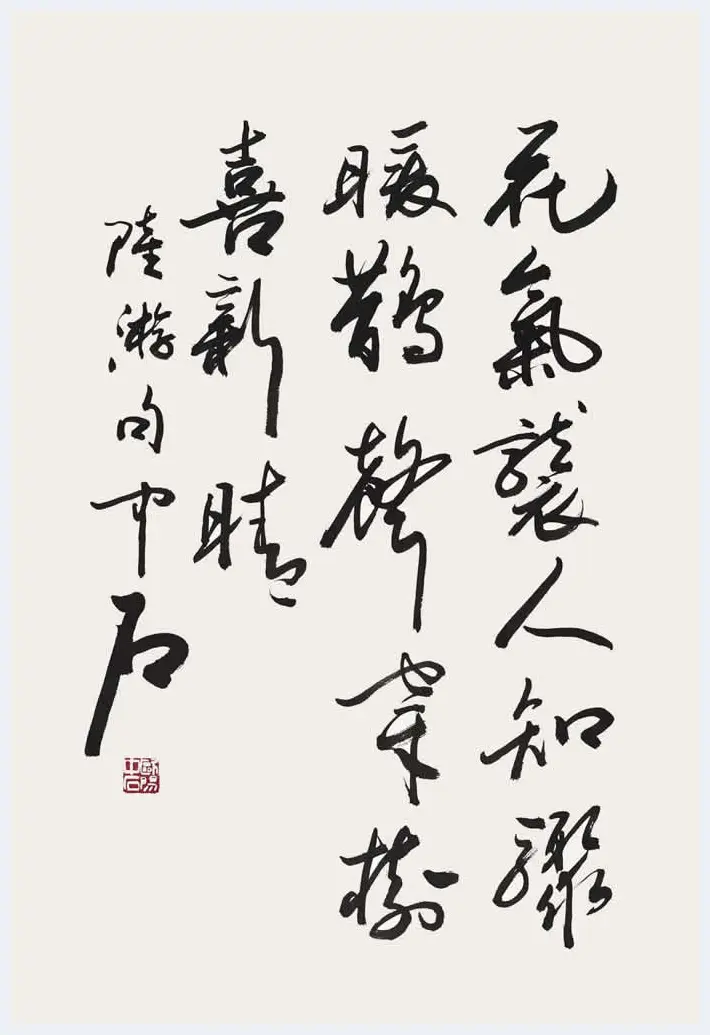 花氣襲人知驟
暖鵲聲穿樹
喜新晴
陸游句中石
歐陽中石